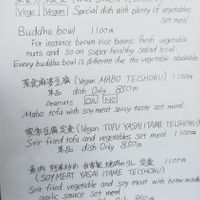 Vege Vegan Special dish with plenty of vegetables
Set meal
Buddha bowl 1100m
For instance brown rice beans fresh vegetable
nuts and so on super healthy salad bowl.
Every buddha bowl is different due the vegetable abailable.
麻婆豆腐 (Vegan MABO TEISHOKU) 1100m
単品 dish Only 850m
Peanuts OK NO
Mabo tofu with soy meat spicy taste set meal.
定食 (Vegan TOFU YASAI ITAME TEISHOKU)
Stir fried tofu and vegetables set meal. 1100m
単品 dish only 850m
定食
(SOY MEAT YASAI ITAME TEISHOKU) 1100m
Stir fried vegetable and soy meat with home made
garlic sauce Set meal